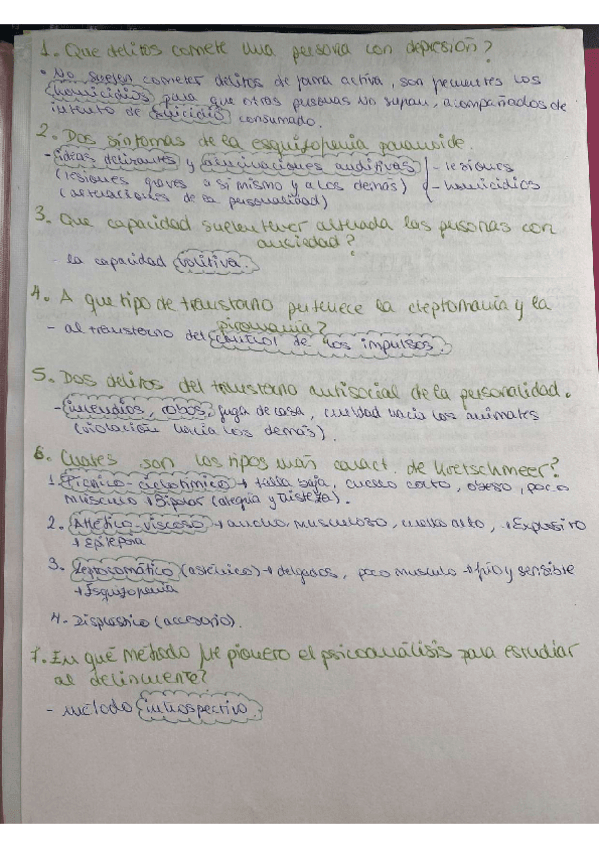 1. Que delitos comete una persona con depresión?
• No suelen cometer delitos de forma activa, son frecuentes los
homicidios para que otras personas no sufran, acompañados de
intento de suicidio consumado.
2. Dos síntomas de la esquizofrenia paranoide.
- ideas delirantes y alucinaciones auditivas - lesiones
(lesiones graves a si mismo y a los demás) - homicidios
(alteraciones de la personalidad)
3. Que capacidad suelen tener alterada las personas con
ansiedad?
- la capacidad volitiva.
4. A que tipo de transtorno pertenece la cleptomanía y la
piromanía?
- al transtorno del control de los impulsos.
5. Dos delitos del transtorno antisocial de la personalidad.
- incendios, robos, fuga de casa, crueldad hacia los animales
(violación hacia los demás).
6. Cuales son los tipos más caract. de Kretschmeer?
1. Pícnico-ciclotímico → talla baja, cuello corto, obeso, poco
músculo → Bipolar (alegría y tristeza).
2. Atlético-viscoso → ancho, musculoso, cuello alto, → Explosivo
→ Epilepsia
3. Leptosomático (asténico) → delgados, poco musculo → frío y sensible
→ Esquizofrenia
4. Displástico (accesorio).
7. En qué método fue pionero el psicoanálisis para estudiar
al delincuente?
- método introspectivo.